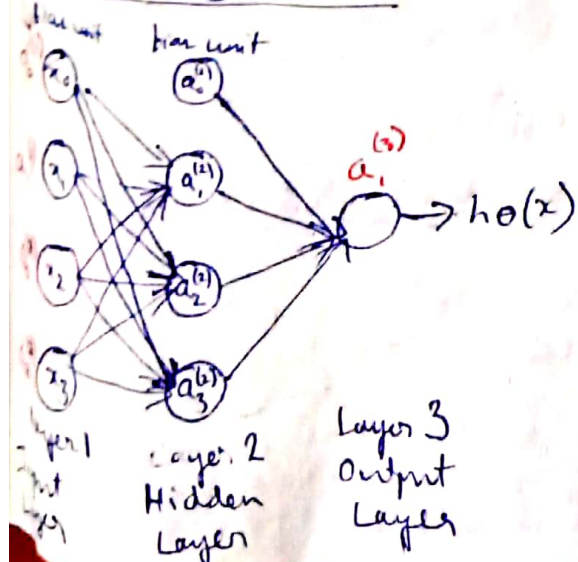 bias unit
bias unit
x₀
a₀⁽²⁾
x₁
a₁⁽²⁾
a₁⁽³⁾
hθ(x)
x₂
a₂⁽²⁾
x₃
a₃⁽²⁾
Layer 1
Input
Layer
Layer 2
Hidden
Layer
Layer 3
Output
Layer